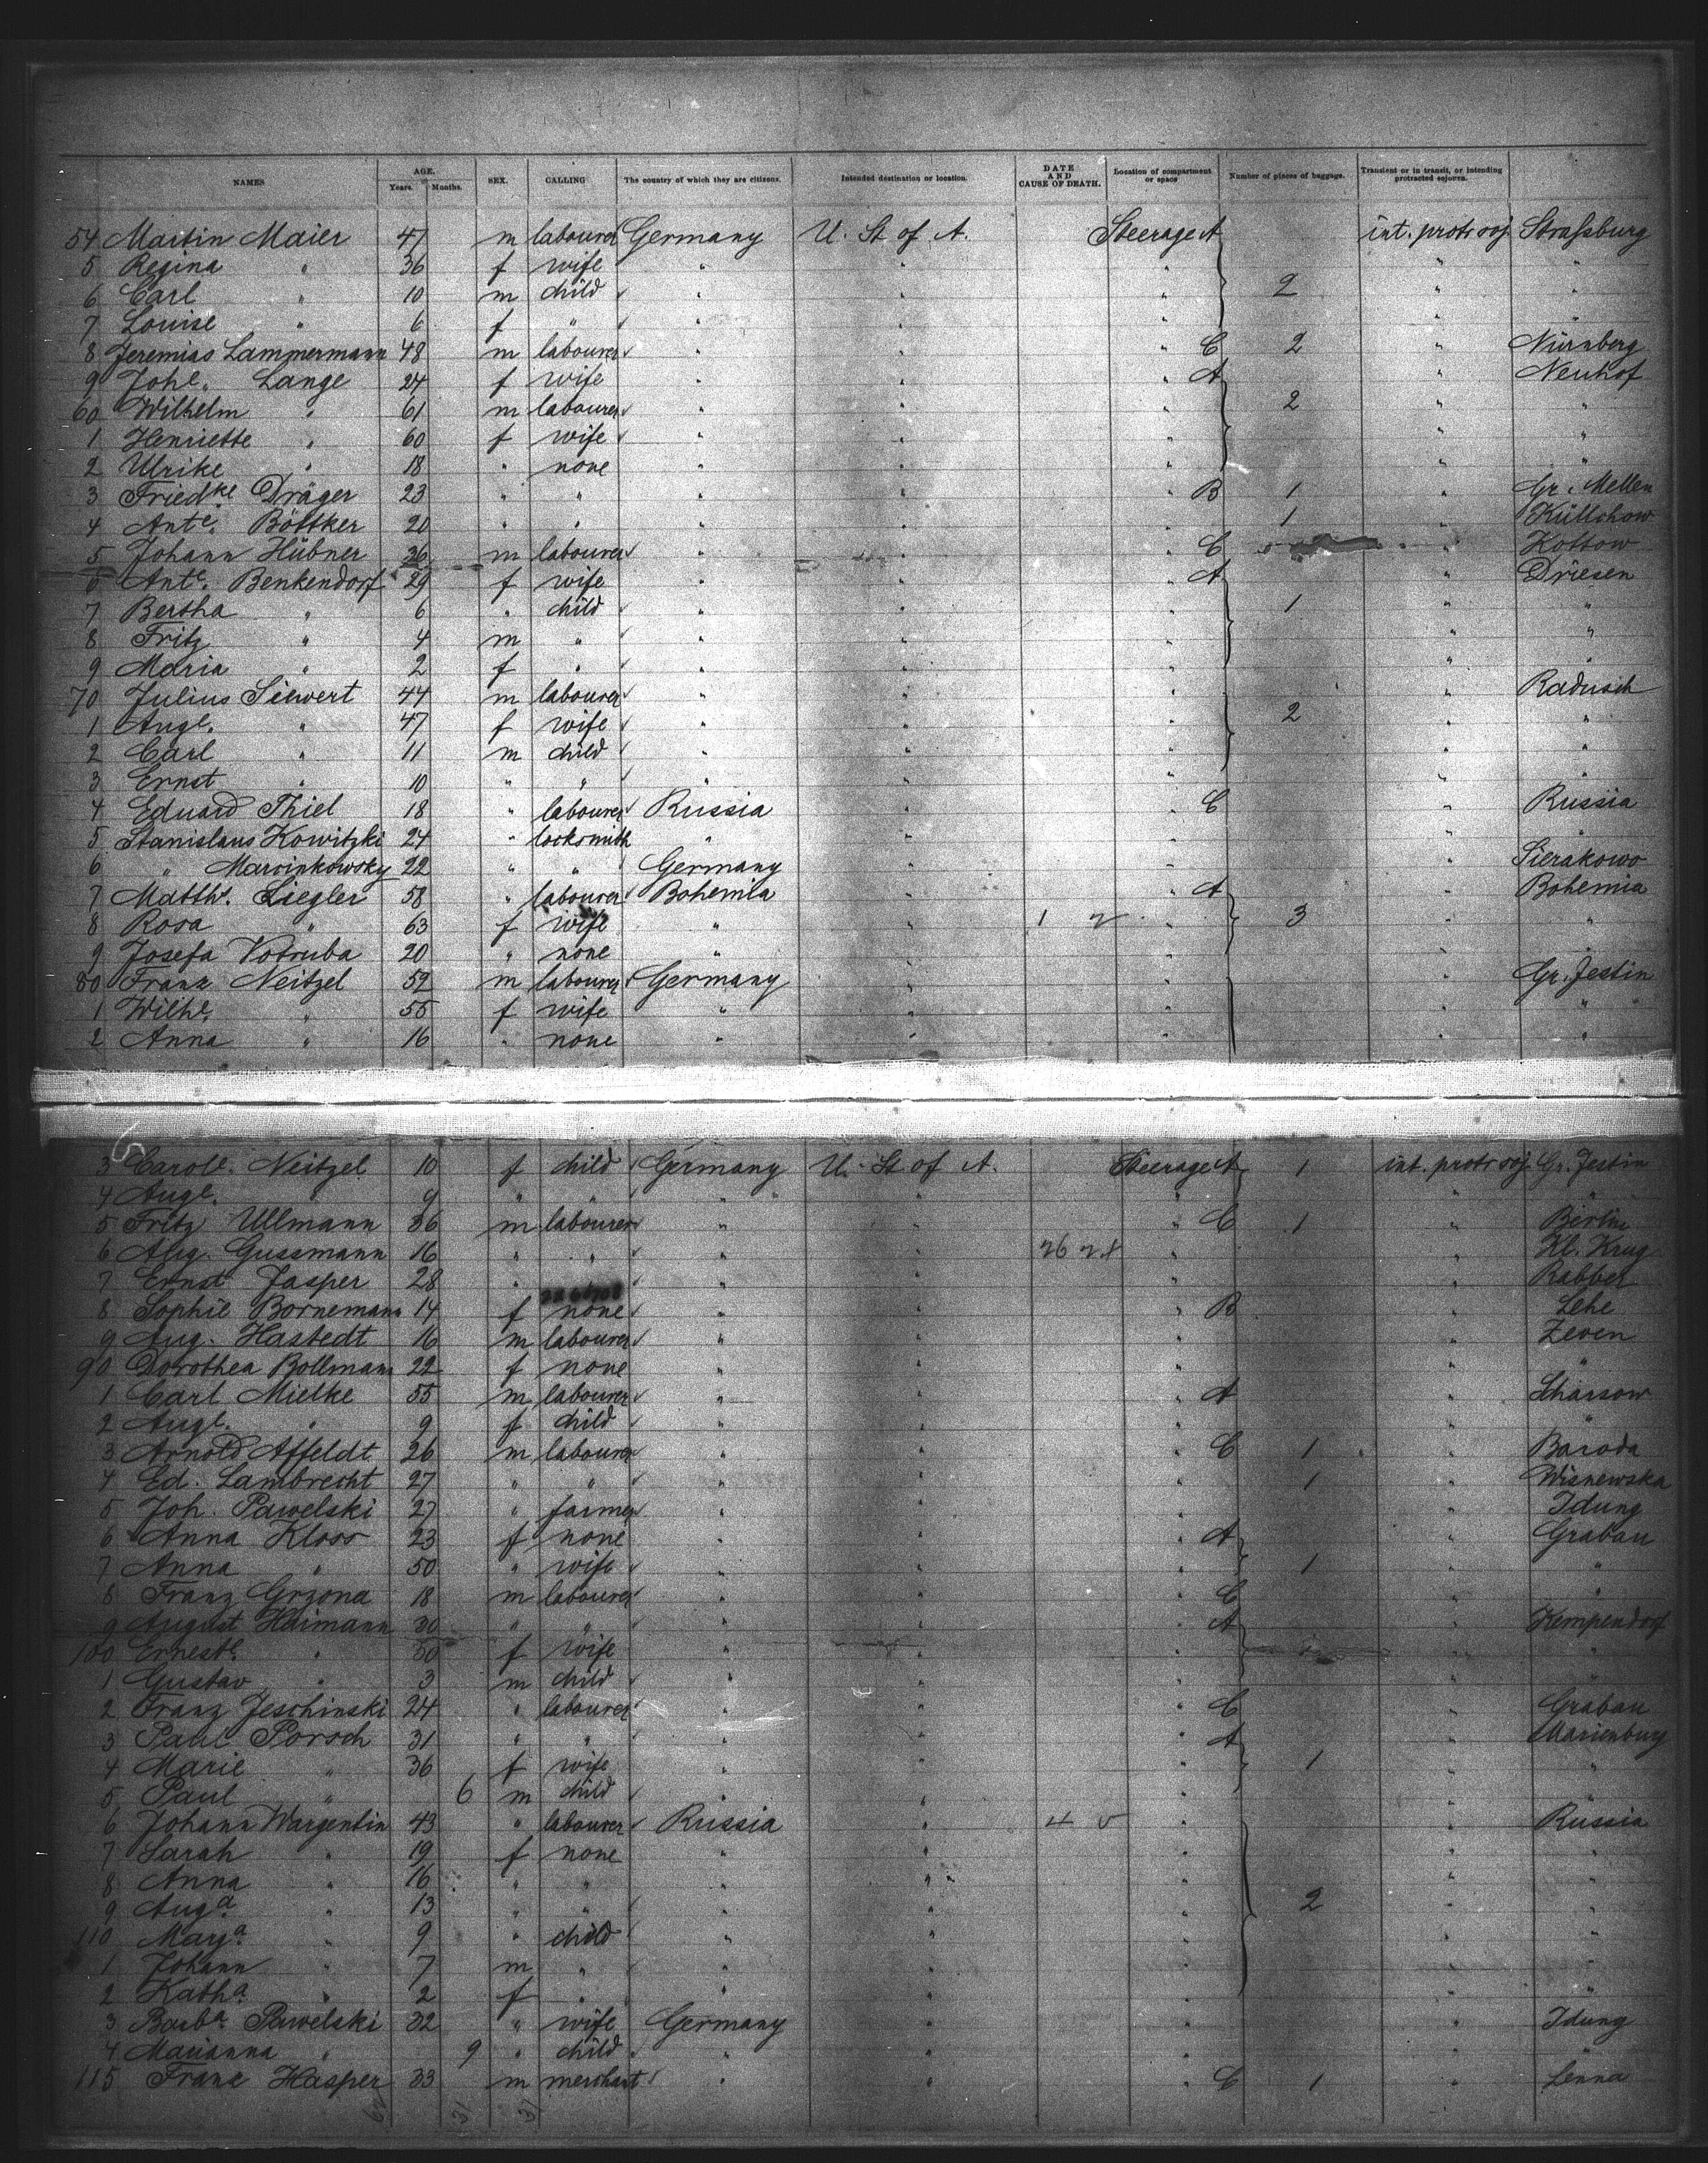 NAMES AGE. Years. Months. SEX. CALLING The country of which they are citizens. Intended destination or location. DATE AND CAUSE OF DEATH. Location of compartment or space Number of pieces of baggage. Transient or in transit, or intending protracted sojorn.
54 Martin Maier 47 m labourer Germany U. St of A. Steerage A int. protr soj. Strassburg
5 Regina " 36 f wife " " " " "
6 Carl " 10 m child " " " 2 " "
7 Louise " 6 f " " " " " "
8 Jeremias Lammermann 48 m labourer " " " C 2 " Nürnberg
9 Johe. Lange 24 f wife " " " A " Neuhof
60 Wilhelm " 61 m labourer " " " 2 " "
1 Henriette " 60 f wife " " " " "
2 Ulrike " 18 " none " " " " "
3 Friedke Dräger 23 " " " " " B 1 " Gr. Mellen
4 Ante. Böttker 20 " " " " " 1 " Küllchow
5 Johann Hübner 36 m labourer " " " C " Kottow
6 Ante. Benkendorf 29 f wife " " " A " Driesen
7 Bertha " 6 " child " " " 1 " "
8 Fritz " 4 m " " " " " "
9 Maria " 2 f " " " " " "
70 Julius Siewert 44 m labourer " " " " Radusch
1 Auge. " 47 f wife " " " 2 " "
2 Carl " 11 m child " " " " "
3 Ernst " 10 " " " " " " "
4 Eduard Thiel 18 " labourer Russia " " C " Russia
5 Stanislaus Kowitzki 24 " locksmith " " " " "
6 " Marcinkowsky 22 " " Germany " " " Sierakowo
7 Matths. Liegler 58 " labourer Bohemia " " A " Bohemia
8 Rosa " 63 f wife " " 1 2 " 3 " "
9 Josefa Votruba 20 " none " " " " "
80 Franz Neitzel 59 m labourer Germany " " " Gr. Jestin
1 Wilhe. " 55 f wife " " " " "
2 Anna " 16 " none " " " " "
3 Carole. Neitzel 10 f child Germany U. St of A. Steerage A 1 int. protr soj. Gr. Jestin
4 Auge. " 9 " " " " " " "
5 Fritz Ullmann 36 m labourer " " " C 1 " Berlin
6 Aug. Gussmann 16 " " " " " " Kl. Krug
7 Ernst Jasper 28 " " " " " Rabber
8 Sophie Bornemann 14 f none " " " B " Lehe
9 Aug. Hastedt 16 m labourer " " " " Zeven
90 Dorothea Bollmann 22 f none " " " " "
1 Carl Mielke 55 m labourer " " " A " Scharsow
2 Auge. " 9 f child " " " " "
3 Arnold Affeldt 26 m labourer " " " C 1 " Baroda
4 Ed. Lambrecht 27 " " " " " 1 " Wisnewska
5 Joh. Pawelski 27 " farmer " " " " Idung
6 Anna Kloss 23 f none " " " A " Grabau
7 Anna " 50 " wife " " " 1 " "
8 Franz Grzona 18 m labourer " " " C " "
9 August Haimann 30 " " " " " A " Kempendorf
100 Erneste. " 30 f wife " " " 1 " "
1 Gustav " 3 m child " " " " "
2 Franz Jeschinski 24 " labourer " " " C " Grabau
3 Paul Porsch 31 " " " " " A " Marienburg
4 Marie " 36 f wife " " " 1 " "
5 Paul " 6 m child " " " " "
6 Johann Wargentin 43 " labourer Russia " " " Russia
7 Sarah " 19 f none " " " " "
8 Anna " 16 " " " " " " "
9 Auga. " 13 " " " " " 2 " "
110 Marga. " 9 " child " " " " "
1 Johann " 7 m " " " " " "
2 Katha. " 2 f " " " " " "
3 Barba. Pawelski 32 " wife Germany " " " Idung
4 Marianna " 9 " child " " " " "
115 Franz Hasper 33 m merchant " " " C 1 " Lenna